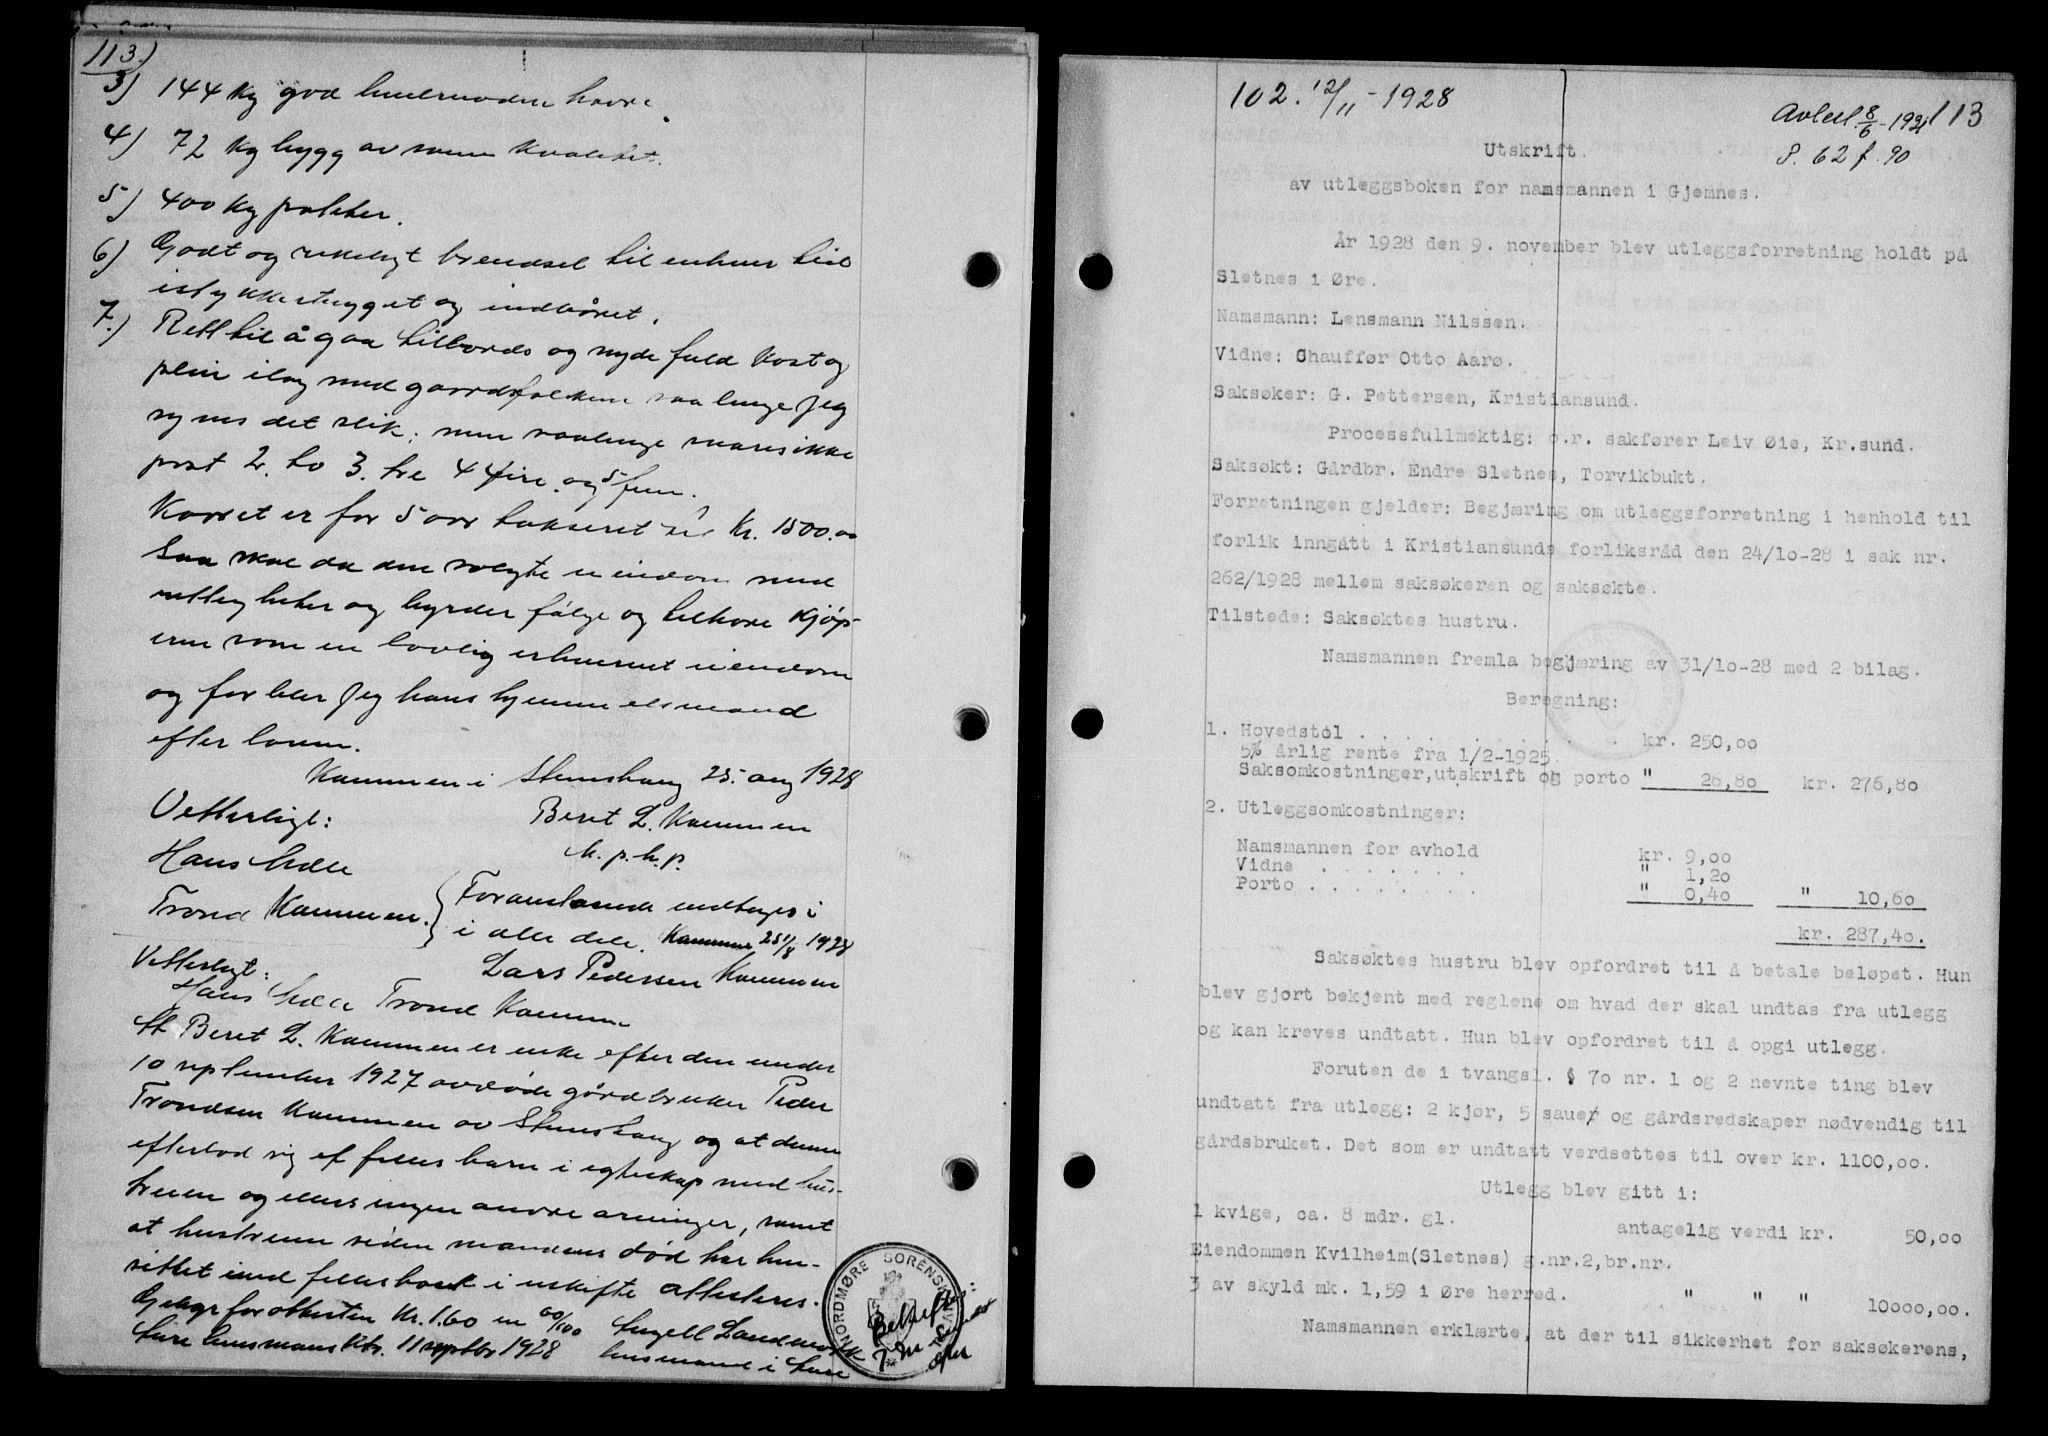 113)
3) 144 kg god havre.
4) 72 kg bygg av samme kvalitet.
5) 400 kg poteter.
6) Godt og rikeligt brendsel til enhver tid
istykkerhugget og indbåret.
7.) Rett til å gaa tilbords og nyde fuld kost og
pleie ilag med gaardsfolkene saa lenge jeg
synes det slik; men saalenge svares ikke
post 2. to 3. tre 4 fire og 5 fem.
Kaaret er for 5 aar takseret til Kr. 1500.00
Saa skal da den solgte eiendom med
rettigheter og byrder følge og tilhøre kjøp-
eren som en lovlig erhvervet eiendom
og forblir jeg hans hjemmelsmand
efter loven.
Kammen i Stemshaug 25. aug 1928
Vetterligt:
Beret L. Kammen
Hans
m. p. h. p.
Trond Kammen.
Foranstaaende vedtages i
i alle dele. Kammen 25/8 1928
Lars Pedersen Kammen
Vetterligt:
Hans Trond Kammen
At Beret L. Kammen er enke efter den under
10 september 1927 avdøde gårdbruker Peder
Trondsen Kammen av Stemshaug og at denne
efterlod sig ef felles barn i egteskap med hus-
truen og ellers ingen andre arvinger, samt
at hustruen siden mandens død har hen-
sittet med fellesboet i uskifte attesteres.
Gebyr for attesten Kr. 1.60 en 60/100
Lensmand i
11 septbr 1928
NORDMØRE SORENSKRIVERI
Bekreftes:
102. 12/11 - 1928
Avlest 8/6 - 1931
113
P. 62 f. 90
Utskrift.
av utleggsboken for namsmannen i Gjemnes.
År 1928 den 9. november blev utleggsforretning holdt på
Sletnes i Øre.
Namsmann: Lensmann Nilssen.
Vidne: Shauffør Otto Aarø.
Saksøker: G. Pettersen, Kristiansund.
Processfullmektig: o.r. sakfører Leiv Øie, Kr.sund.
Saksøkt: Gårdbr. Endre Sletnes, Torvikbukt.
Forretningen gjelder: Begjæring om utleggsforretning i henhold til
forlik inngått i Kristiansunds forliksråd den 24/10-28 i sak nr.
262/1928 mellem saksøkeren og saksøkte.
Tilstede: Saksøktes hustru.
Namsmannen fremla begjæring av 31/10-28 med 2 bilag.
Beregning:
1. Hovedstol . . . . . . . . . . . . kr. 250,00
5% årlig rente fra 1/2-1925.
Saksomkostninger,utskrift og porto " 26,80 kr. 276,80
2. Utleggsomkostninger:
Namsmannen for avhold kr. 9,00
Vidne . . . . . . . " 1,20
Porto . . . . . . . . " 0,40 " 10,60
kr. 287,40.
Saksøktes hustru blev opfordret til å betale beløpet. Hun
blev gjort bekjent med reglene om hvad der skal undtas fra utlegg
og kan kreves undtatt. Hun blev opfordret til å opgi utlegg.
Foruten de i tvangsl. § 70 nr. 1 og 2 nevnte ting blev
undtatt fra utlegg: 2 kjør, 5 sauer og gårdsredskaper nødvendig til
gårdsbruket. Det som er undtatt verdsettes til over kr. 1100,00.
Utlegg blev gitt i:
1 kvige, ca. 8 mdr. gl. antagelig verdi kr. 50,00
Eiendommen Kvilheim(Sletnes) g.nr.2,br.nr.
3 av skyld mk. 1,59 i Øre herred. " " " 10000,00.
Namsmannen erklærte, at der til sikkerhet for saksøkerens,